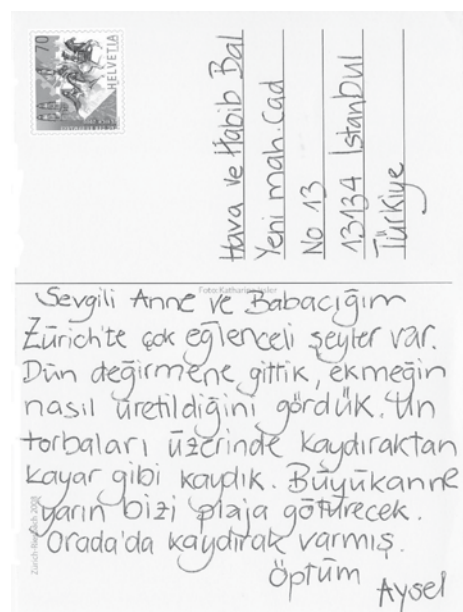 70
HELVETIA
Hava ve Habib Bal
Yeni mah. Cad
No 13
13134 İstanbul
Türkiye
Foto: Katharina
Sevgili Anne ve Babacığım
Zürich'te çok eğlenceli şeyler var.
Dün değirmene gittik, ekmeğin
nasıl üretildiğini gördük. Un
torbaları üzerinde kaydıraktan
kayar gibi kaydık. Büyükanne
yarın bizi plaja götürecek.
Orada'da kaydırak varmış.
Öptüm
Aysel
2008